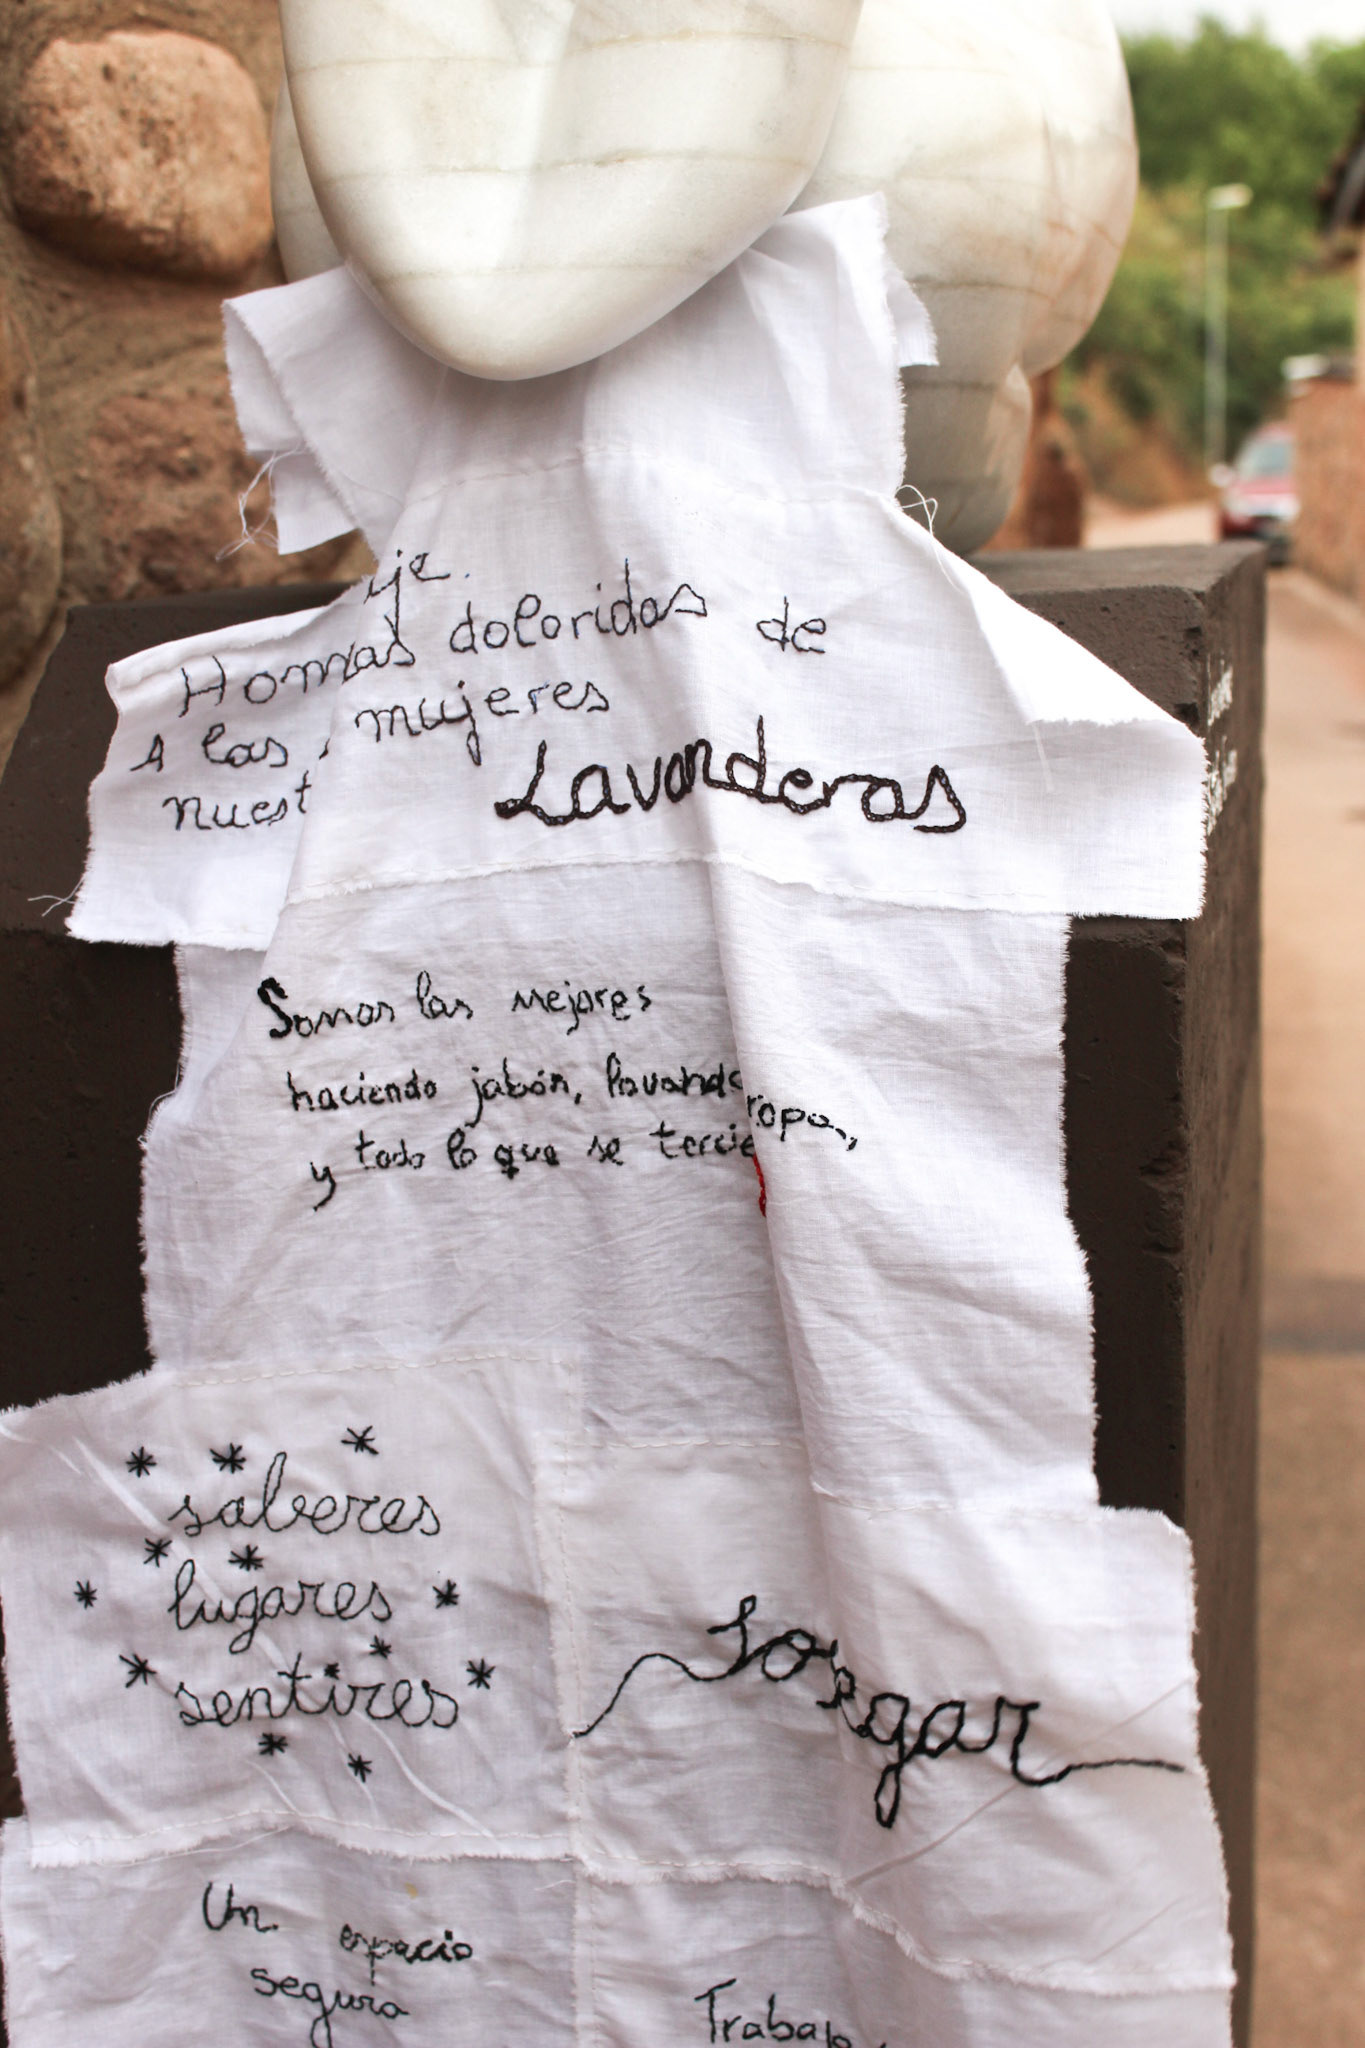 Homas doloridas de
A las mujeres
nuest
Lavanderas
Somos las mejores
haciendo jabón, lavand ropa,
y todo lo que se tercie
saberes
lugares
sentires
Sosegar
Un espacio
seguro
Trabajo